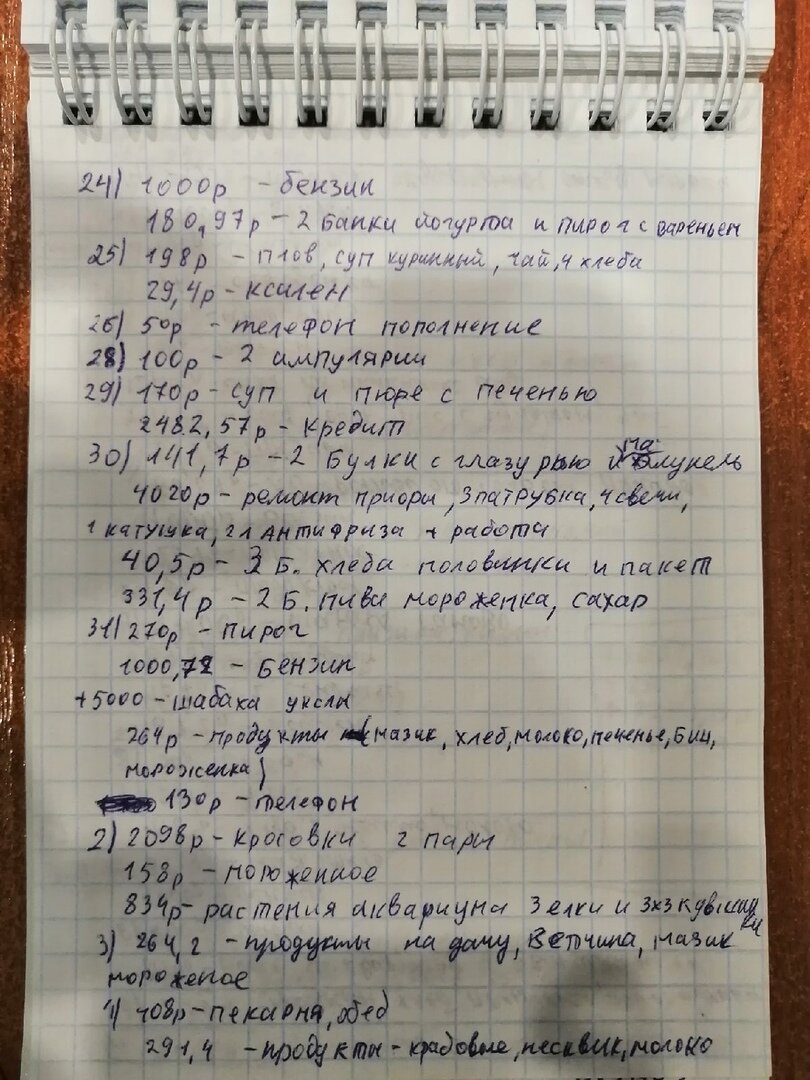 24) 1000р - бензин
180,97р - 2 банки йогурта и пирог с вареньем
25) 198р - плов, суп куринный, чай, 4 хлеба
29,4р - ксилен
26) 50р - телефон пополнение
28) 100р - 2 ампулярии
29) 170р - суп и пюре с печенью
2482,57р - кредит
30) 141,7р - 2 Булки с глазурью и
4020р - ремонт приори, 3 патрубка, 4 свечи,
1 катушка, 2л Антифриза + работа
40,5р - 3 Б. хлеба половинки и пакет
331,4р - 2 Б. пива мороженка, сахар
31) 270р - пирог
1000,72 - Бензин
+5000 - шабаха
264р - продукты (мазик, хлеб, молоко, печенье, Бич,
мороженка)
130р - телефон
2) 2098р - кросовки 2 пары
158р - мороженное
834р - растения аквариуна 3 елки и
3) 264,2 - продукты на дачу, Ветчина, мазик
мороженое
4) 408р - пекарня, обед
291,4 - продукты - крабовые, несквик, молоко